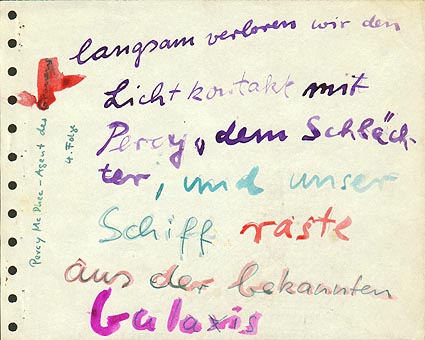 langsam verloren wir den
Lichtkontakt mit
Percy, dem Schläch-
ter, und unser
Schiff raste
aus der bekannten
Galaxis
Percy Mc Ducc - Agent des
4. Folge